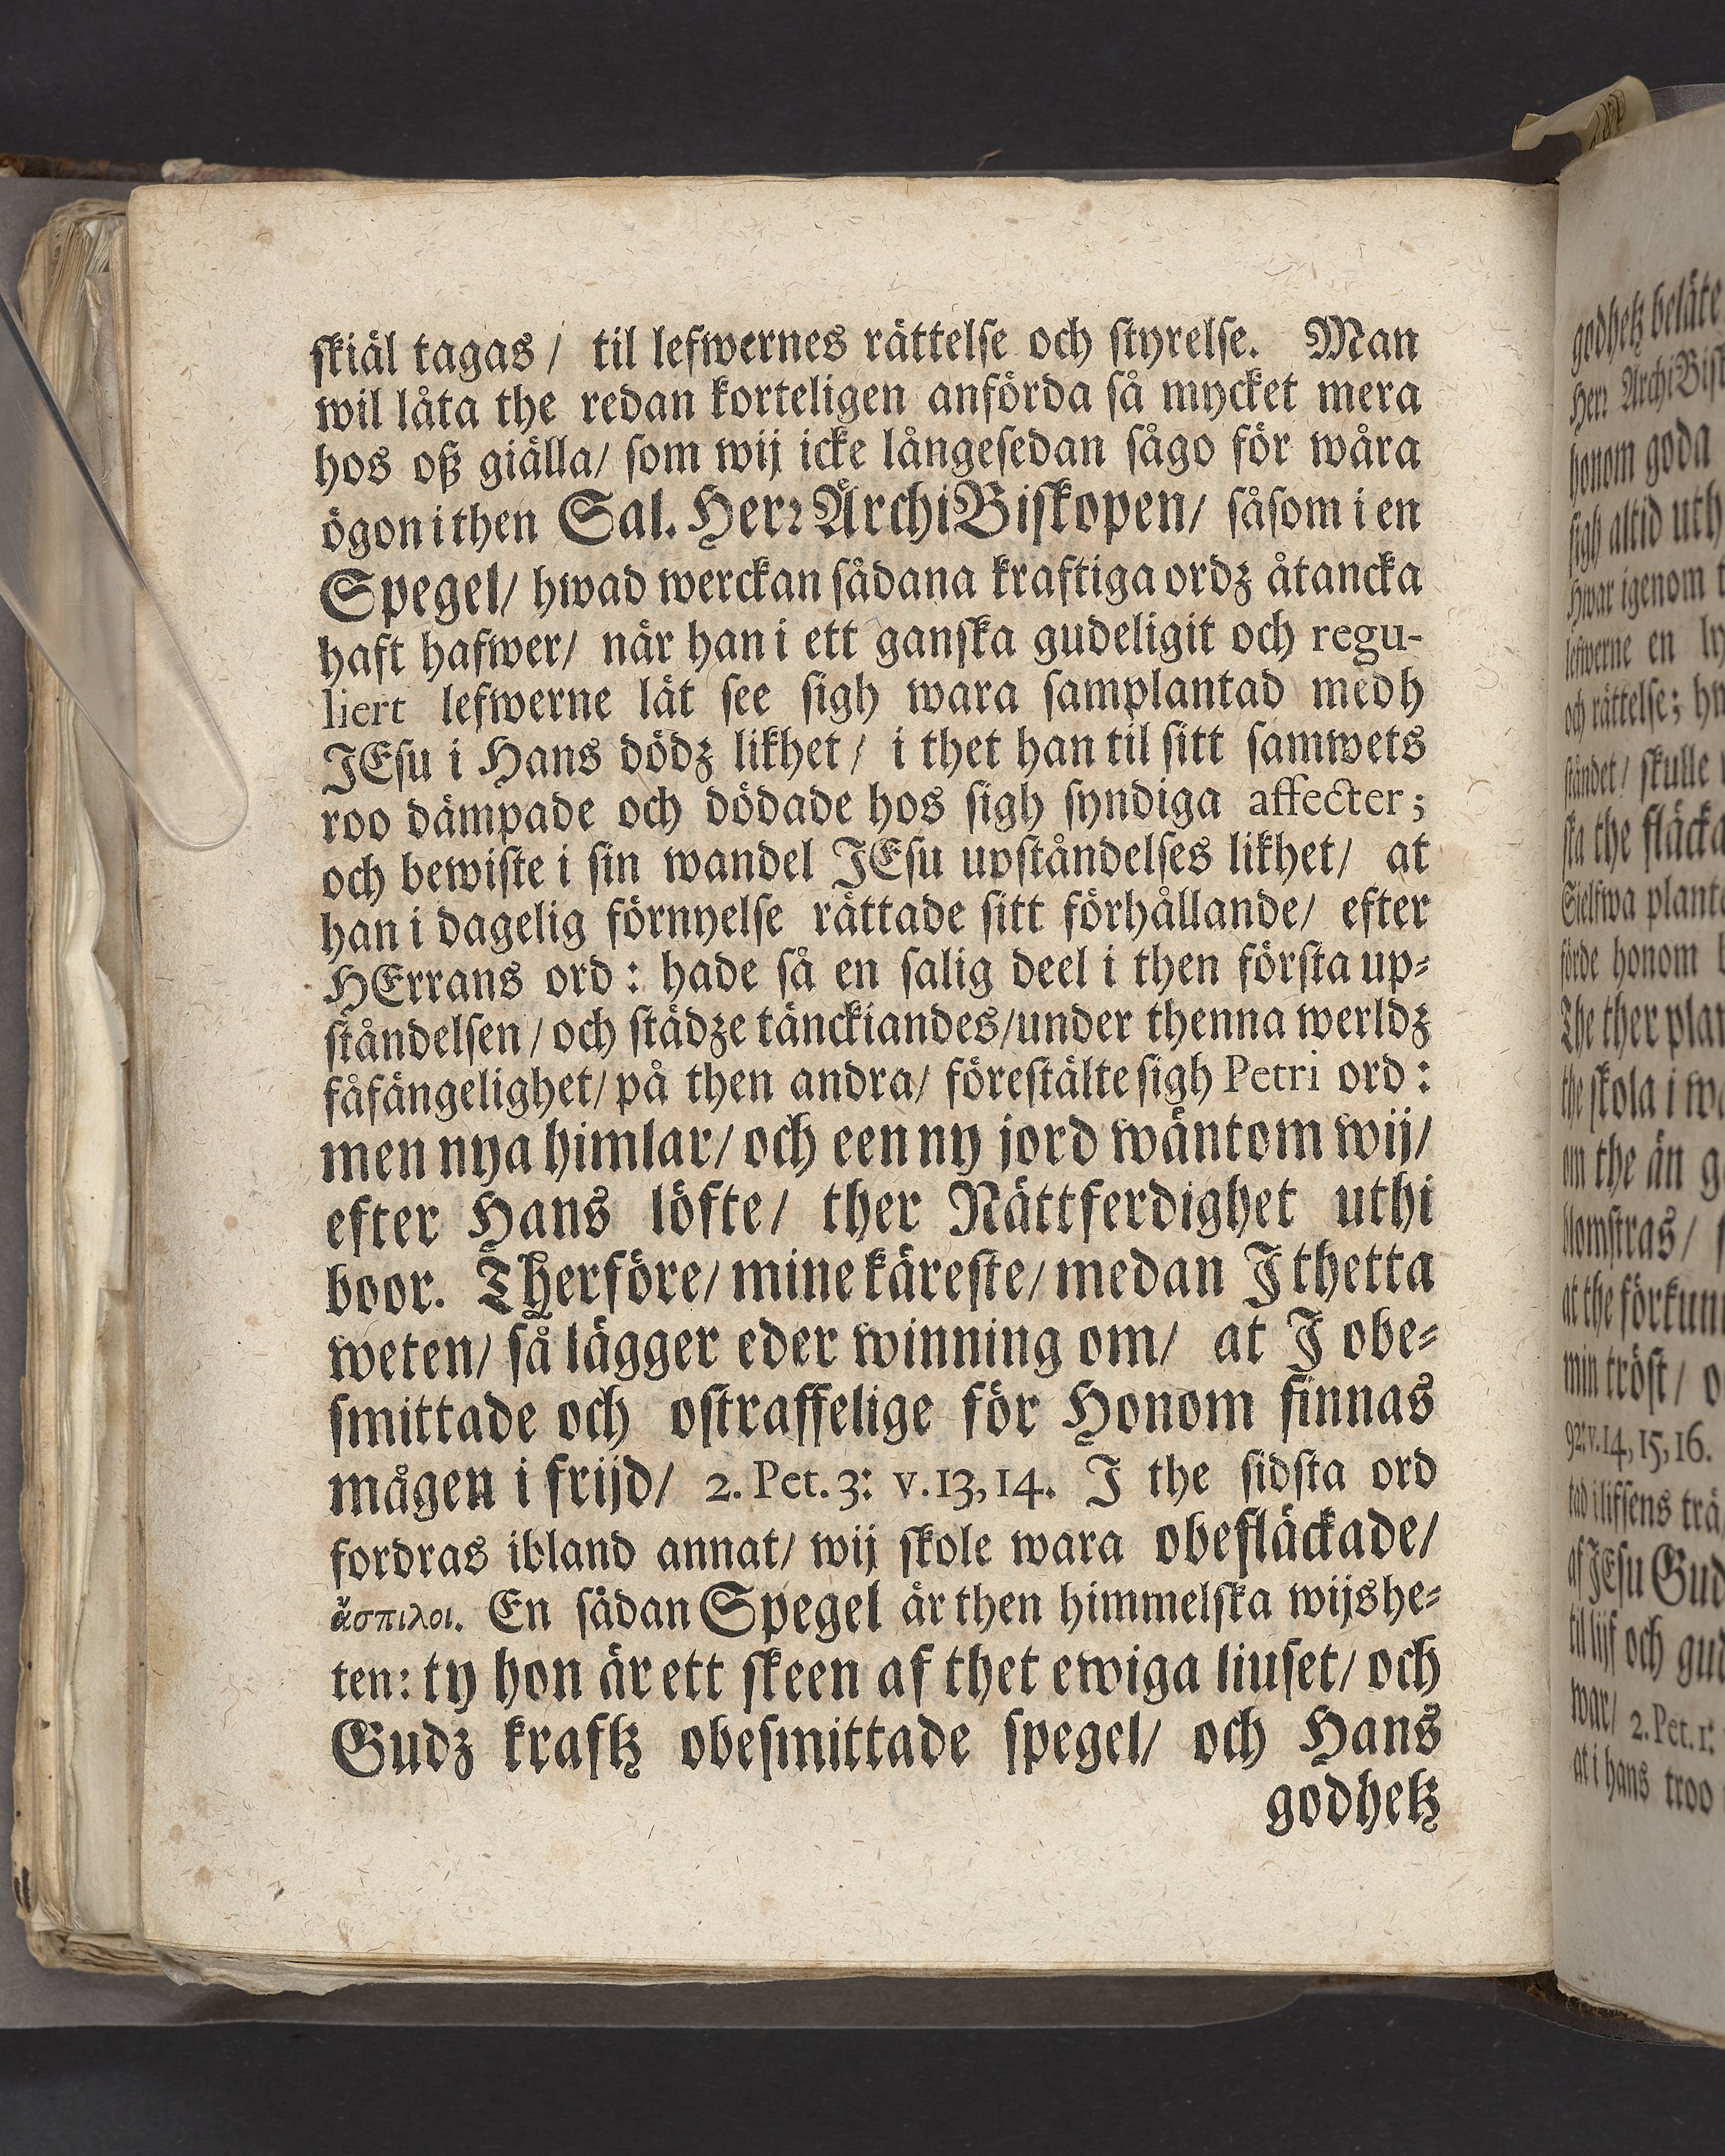 skiäl tagas / til lefwernes rättelse och styrelse. Man
wil låta the redan korteligen anförda så mycket mera
hos oß giälla/ som wij icke långesedan sågo för wåra
ögon i then Sal. Herr ArchiBiskopen/ såsom i en
Spegel/ hwad werckan sådana kraftiga ordz åtancka
haft hafwer/ när han i ett ganska gudeligit och regu-
liert lefwerne lät see sigh wara samplantad medh
JEsu i Hans dödz likhet/ i thet han til sitt samwets
roo dämpade och dödade hos sigh syndiga affecter;
och bewiste i sin wandel JEsu upståndelses likhet/ at
han i dagelig förnyelse rättade sitt förhållande/ efter
HErrans ord : hade så en salig deel i then första up-
ståndelsen/ och städze tänckiandes/ under thenna werldz
fåfängelighet/ på then andra/ förestälte sigh Petri ord :
men nya himlar/ och een ny jord wäntom wij/
efter Hans löfte/ ther Rättferdighet uthi
boor. Therföre/ mine käreste/ medan J thetta
weten/ så lägger eder winning om/ at J obe-
smittade och ostraffelige för Honom finnas
mågen i frijd/ 2. Pet. 3: v. 13, 14. J the sidsta ord
fordras ibland annat/ wij skole wara obefläckade/
ἄσπιλοι. En sådan Spegel är then himmelska wijshe-
ten: ty hon är ett skeen af thet ewiga liuset/ och
Gudz kraftz obesmittade spegel/ och Hans
godhetz
godhetz beläte
Herr ArchiBis
honom goda
sigh altid uth
Hwar igenom
lefwerne en
och rättelse;
ståndet/ skulle
the fläcka
Sielfwa plant
förde honom
The ther plan
the skola i
om the än
blomstras/
at the förkun
min tröst/
92: v. 14, 15, 16.
af JEsu Gud
til lijf och gud
war/ 2. Pet. 1:
at i hans troo